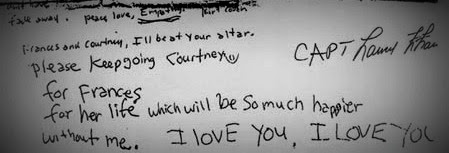 fade away. peace love, Empathy. Kurt Cobain
Frances and Courtney, I'll be at your altar.
Please Keep going Courtney
CAPT
for Frances
for her life which will be so much happier
without me. I LOVE YOU, I LOVE YOU